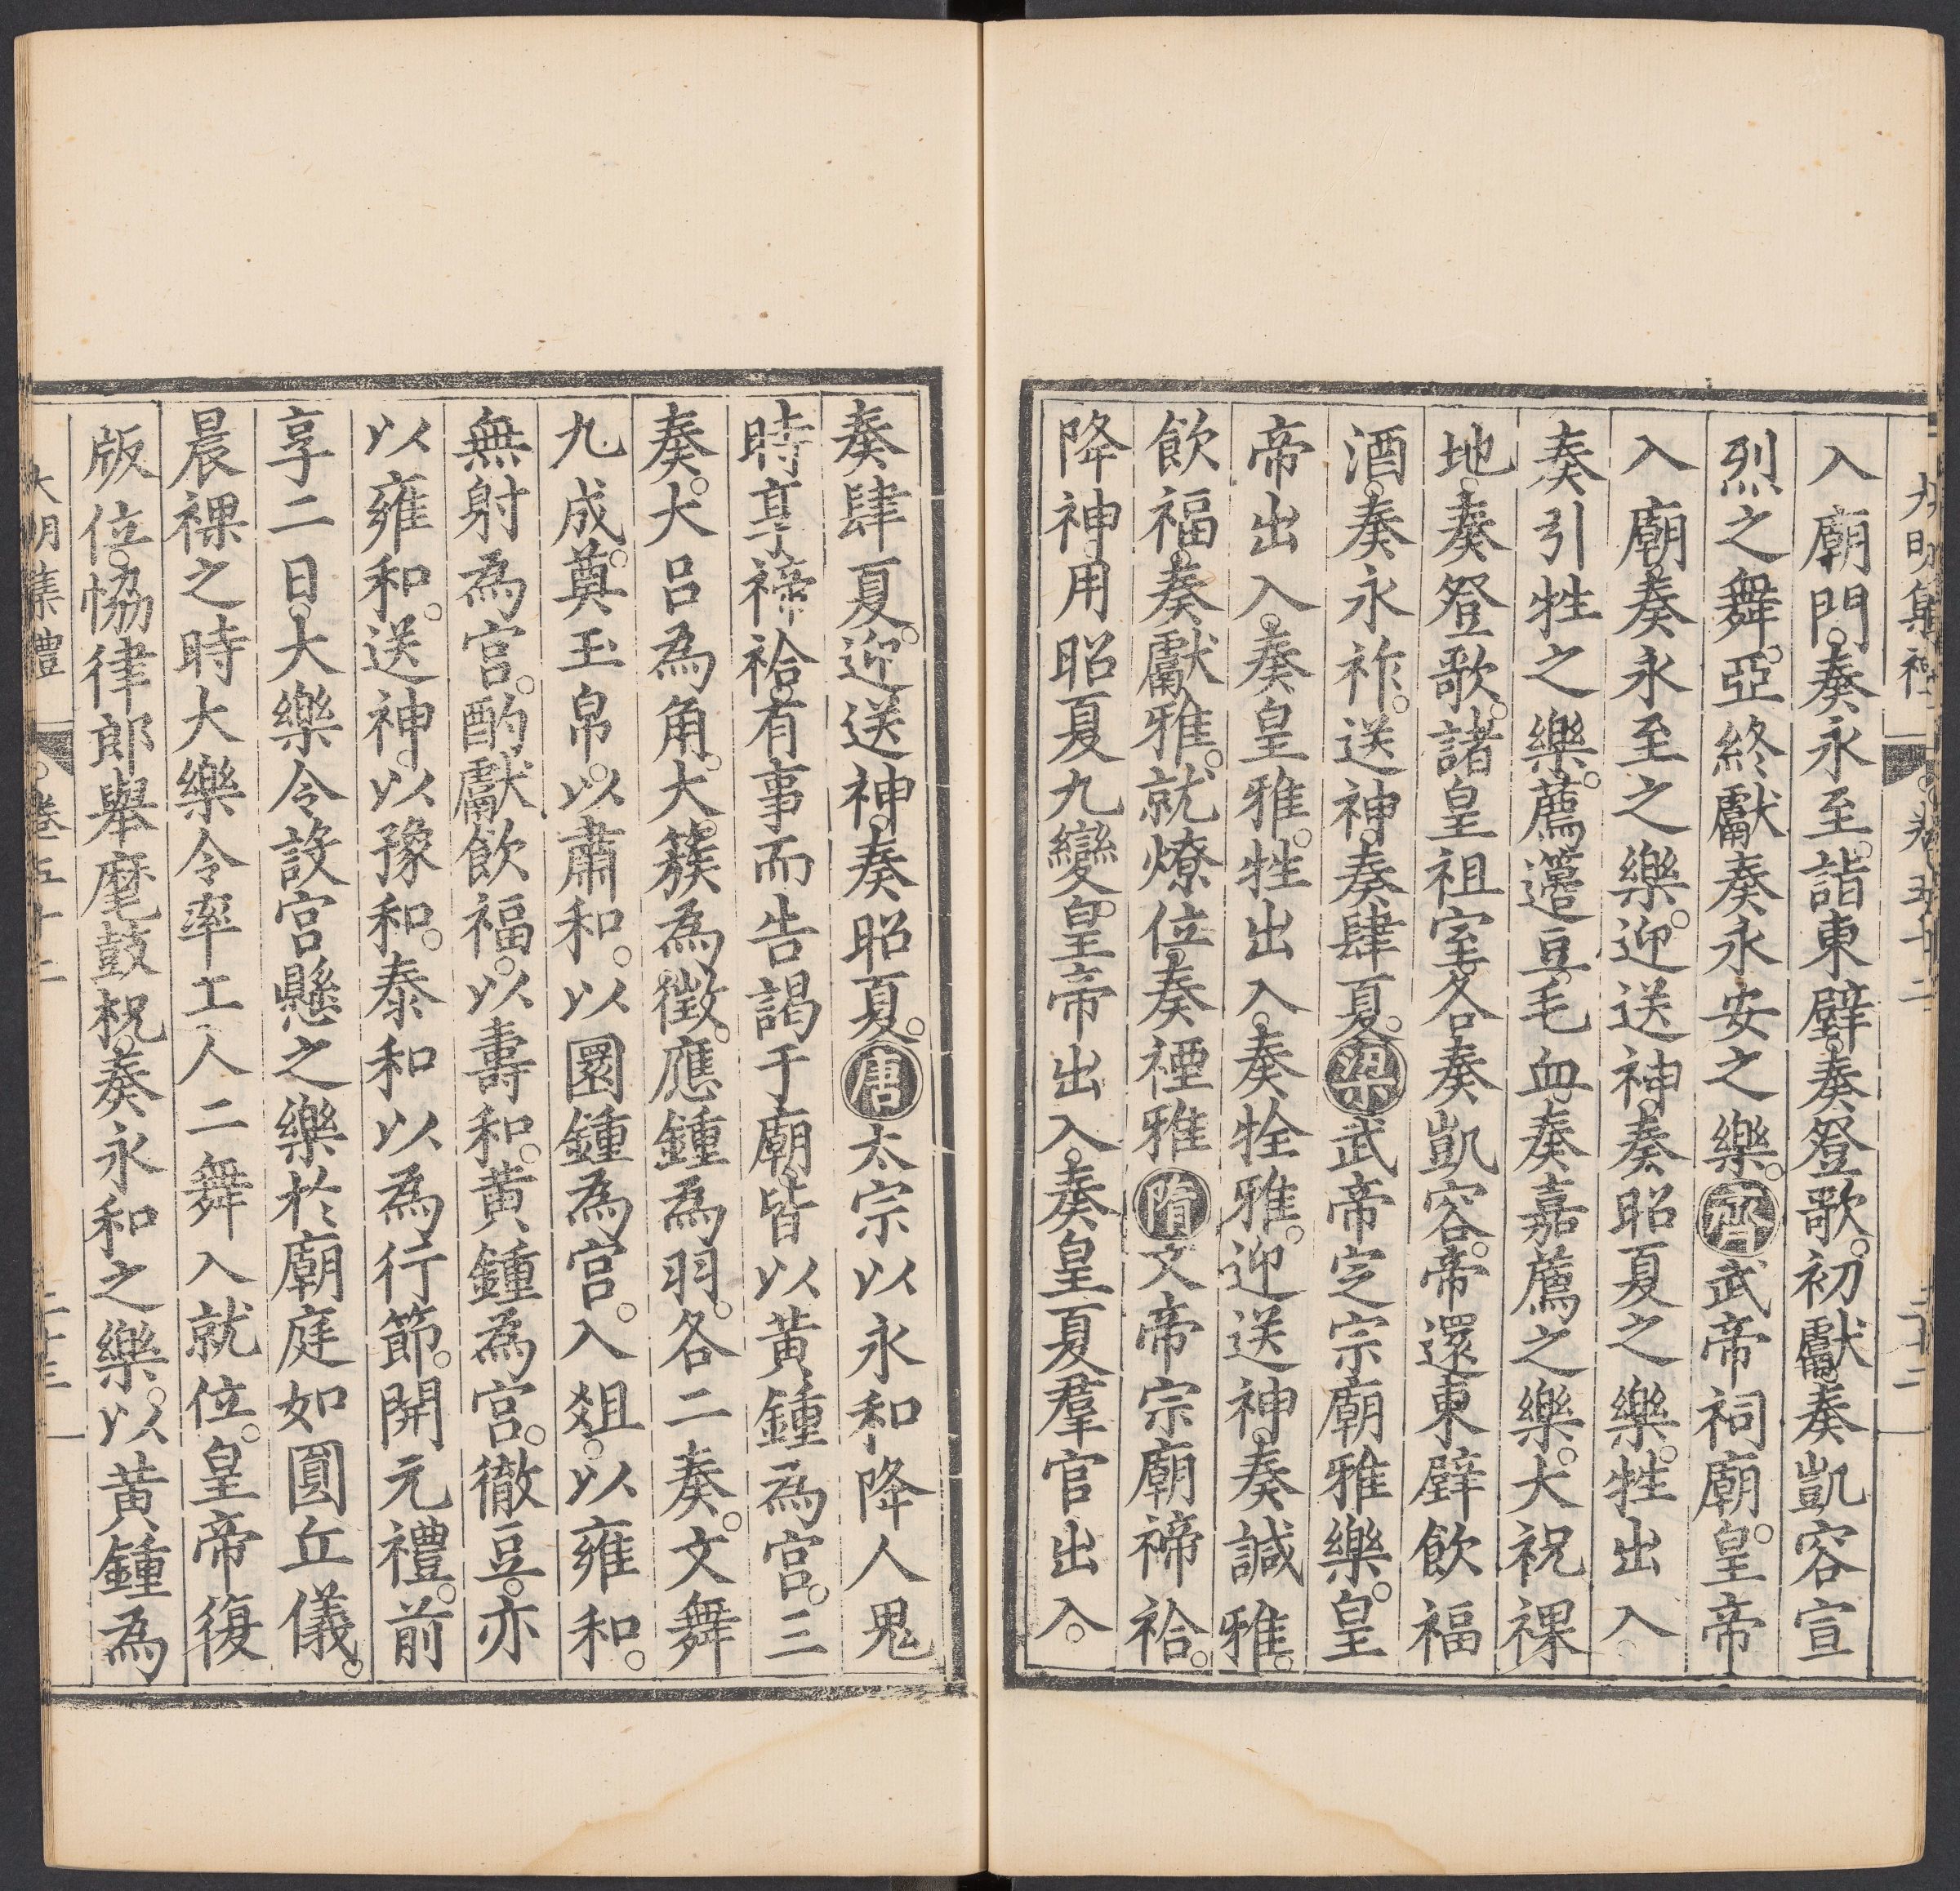 大明集禮 卷五十二 二十二
入廟門。奏永至。詣東壁。奏登歌。初獻。奏凱容宣
烈之舞。亞終獻奏永安之樂。齊武帝祠廟。皇帝
入廟。奏永至之樂。迎送神。奏昭夏之樂。牲出入。
奏引牲之樂。薦籩豆。毛血。奏嘉薦之樂。大祝祼
地。奏登歌。諸皇祖室各奏凱容。帝還東壁飲福
酒。奏永祚。送神。奏肆夏。梁武帝定宗廟雅樂。皇
帝出入。奏皇雅。牲出入。奏牷雅。迎送神。奏諴雅。
飲福。奏獻雅。就燎位。奏禋雅隋文帝宗廟禘祫。
降神。用昭夏九變。皇帝出入。奏皇夏羣官出入。
奏肆夏。迎送神。奏昭夏。唐太宗以永和降人鬼
時享禘祫。有事而告謁于廟。皆以黃鍾為宮。三
奏。大呂為角。大簇為徵。應鍾為羽。各二奏。文舞
九成。奠玉帛。以肅和。以圜鍾為宮。入俎。以雍和。
無射為宮。酌獻飲福。以壽和。黃鍾為宮。徹豆。亦
以雍和。送神。以豫和。泰和以為行節。開元禮。前
享二日。大樂令設宮懸之樂於廟庭如圓丘儀。
晨祼之時大樂令率工人二舞入就位。皇帝復
版位。恊律郎舉麾鼓柷。奏永和之樂。以黃鍾為
大明集禮 卷五十二 二十三